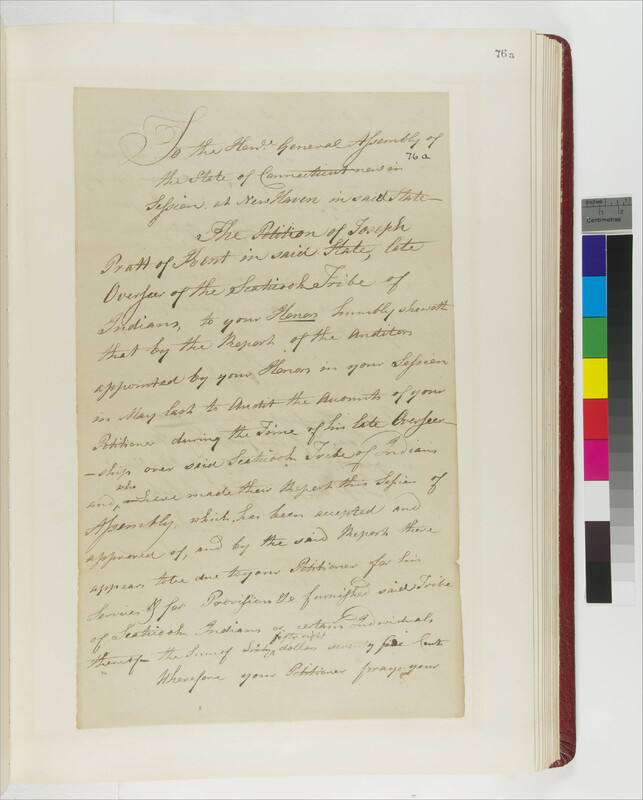 76a
To the Hon.e General Assembly of
76a
the State of Connecticut now in
Session at New Haven in said State—
The Petition of Joseph
Pratt of Kent in said State, late
Overseer of the Scaticook Tribe of
Indians, to your Honors humbly sheweth
that by the Report of the Auditors
appointed by your Honors in your Session
in May last to Audit the Accounts of your
Petitioner during the Time of his late Overseer-
-ship over said Scaticook Tribe of Indians
who
and, have made their Report this Session of
Assembly, which has been accepted and
approved of, and by the said Report there
appears to be due to your Petitioner for his
Services & for Provision &c furnished said Tribe
of Scaticook Indians or certain Individuals
fifty eight
thereof— the Sum of dollars seventy five Cents
Wherefore your Petitioner prays your
Inches
1 2
Centimetres